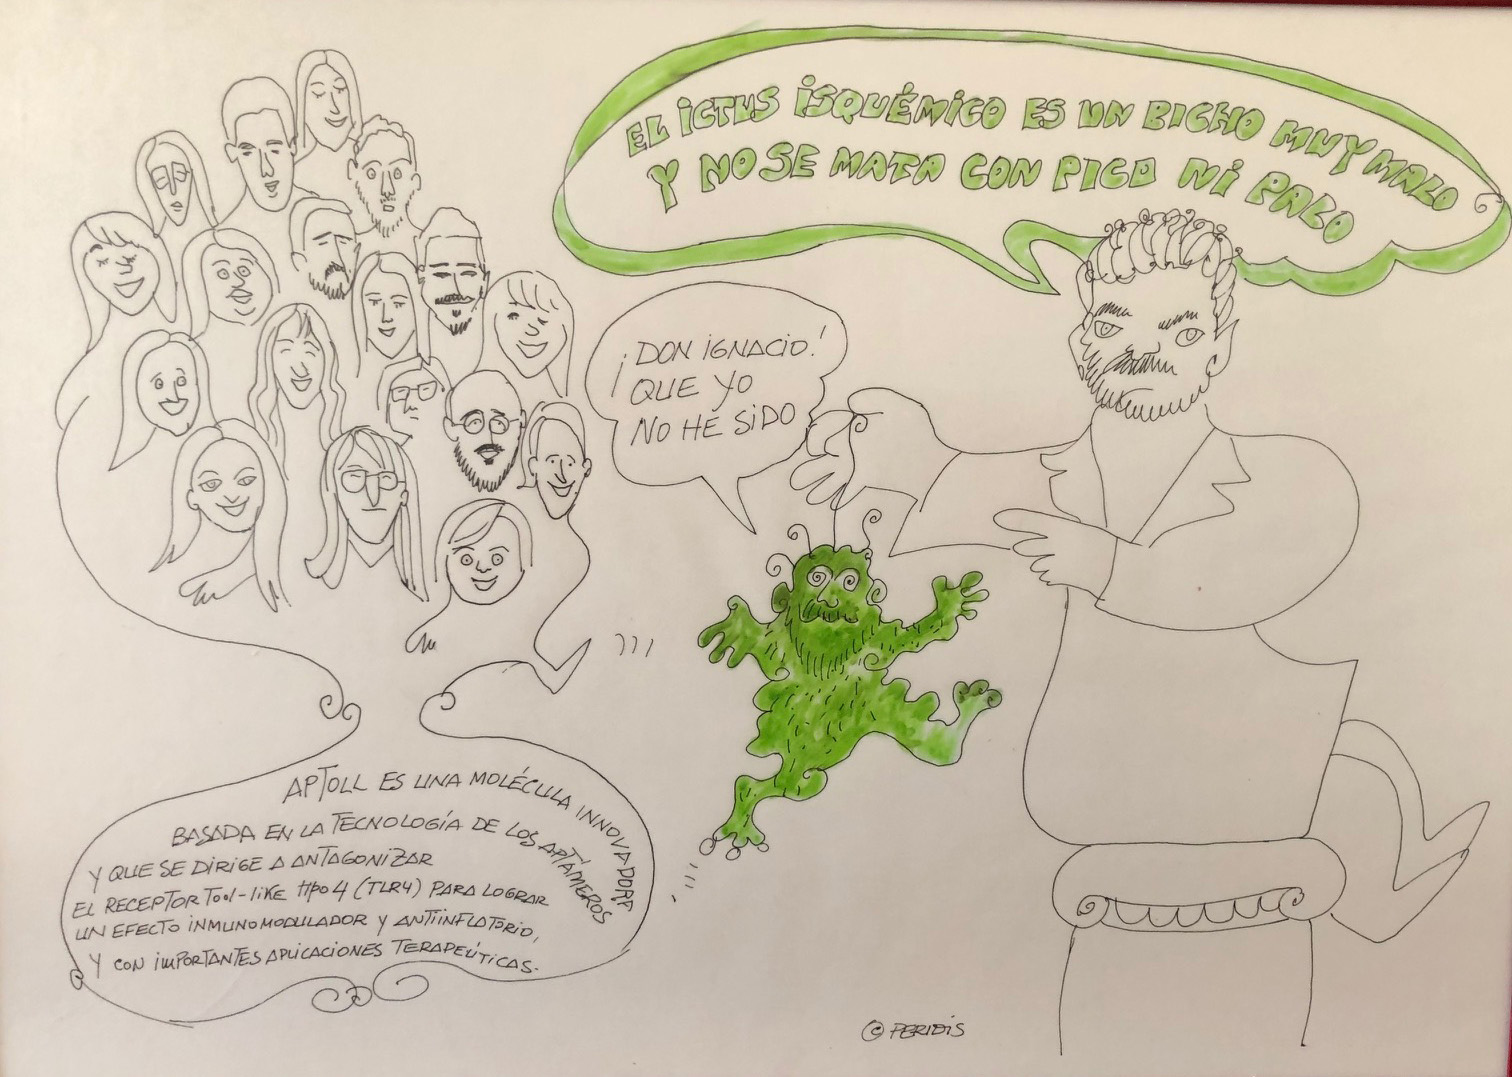 EL ICTUS ISQUÉMICO ES UN BICHO MUY MALO
Y NO SE MATA CON PICO NI PALO
¡DON IGNACIO!
QUE YO
NO HE SIDO
APTOLL ES UNA MOLÉCULA INNOVADORA
BASADA EN LA TECNOLOGÍA DE LOS APTÁMEROS
Y QUE SE DIRIGE A ANTAGONIZAR
EL RECEPTOR Tool-liKE tipo 4 (TLR4) PARA LOGRAR
UN EFECTO INMUNOMODULADOR Y ANTIINFLATORIO,
Y CON IMPORTANTES APLICACIONES TERAPEÚTICAS.
© PERIDIS